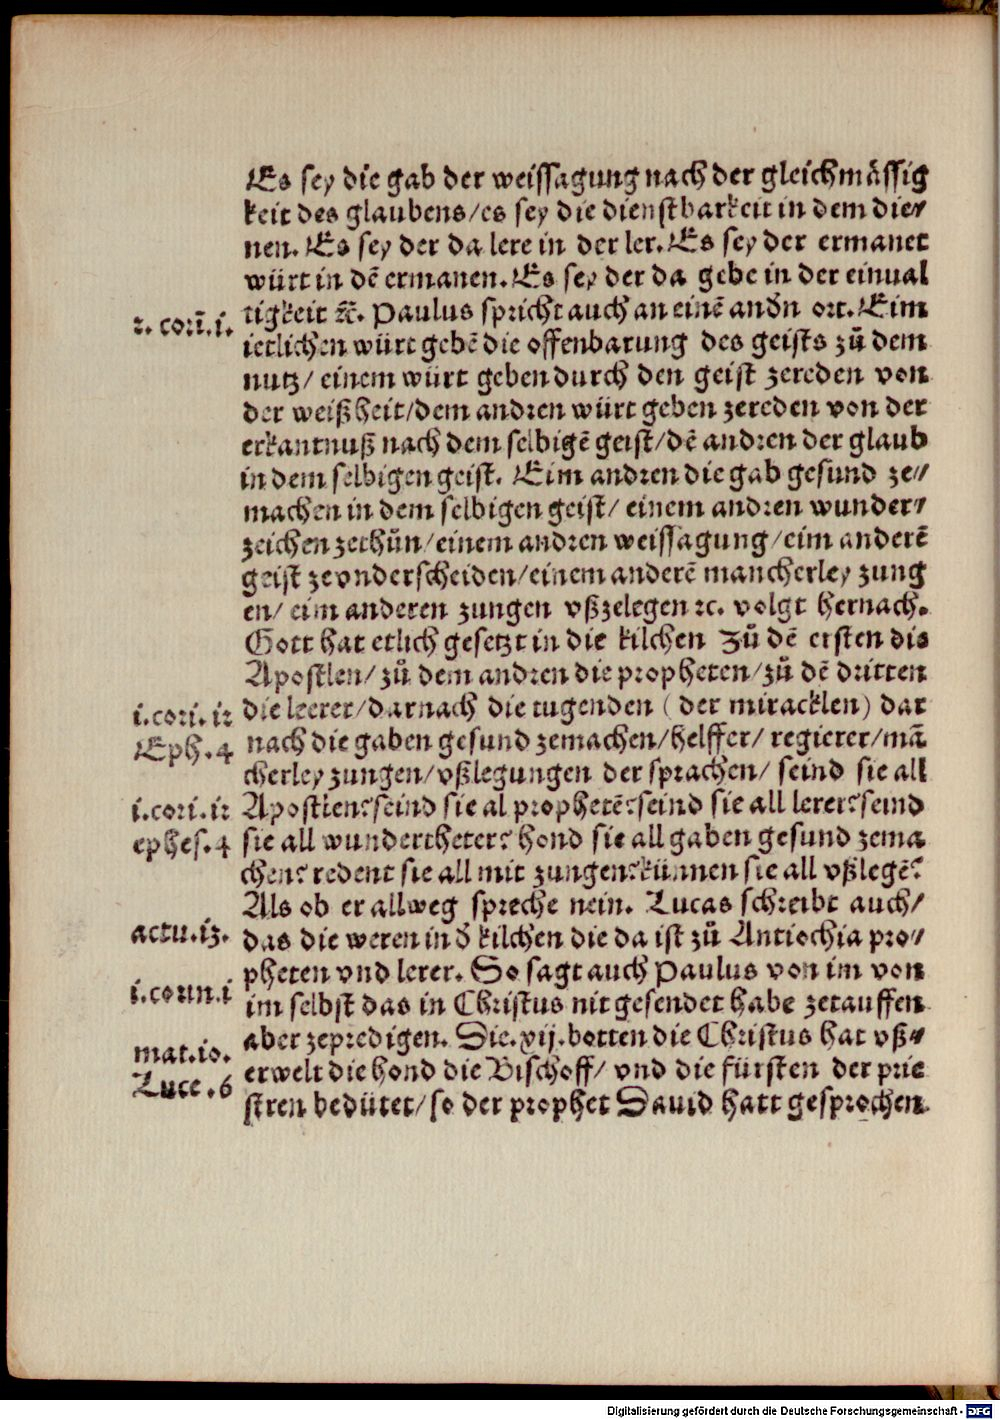 Es sey die gab der weissagung nach der gleichmässig
keit des glaubens/es sey die dienstbarkeit in dem die/
nen. Es sey der da lere in der ler. Es sey der ermanet
würt in dē ermanen. Es sey der da gebe in der einual
tigkeit ꝛc. Paulus spricht auch an einē andn ort. Eim
ietlichen würt gebē die offenbarung des geists zů dem
nutz/ einem würt geben durch den geist zereden von
der weißheit/dem andren würt geben zereden von der
erkantnuß nach dem selbigē geist/dē andren der glaub
in dem selbigen geist. Eim andren die gab gesund ze//
machen in dem selbigen geist/ einem andren wunder/
zeichen zethůn/einem andren weissagung/eim anderē
geist zevnderscheiden/einem anderē mancherley zung
en/ eim anderen zungen vßzelegen ꝛc. volgt hernach.
Gott hat etlich gesetzt in die kilchen Zů dē ersten die
Apostlen/ zů dem andren die propheten/zů dē dritten
die leerer/darnach die tugenden (der miracklen) dar
nach die gaben gesund zemachen/helffer/ regierer/mā
cherley zungen/vßlegungen der sprachen/ seind sie all
Apostlen? seind sie al prophetē? seind sie all lerer? seind
sie all wundertheter? hond sie all gaben gesund zema
chen? redent sie all mit zungen? künnen sie all vßlegē?
Als ob er allweg spreche nein. Lucas schreibt auch/
das die weren in d kilchen die da ist zů Antiochia pro//
pheten vnd lerer. So sagt auch Paulus von im von
im selbst das in Christus nit gesendet habe zetauffen
aber zepredigen. Die. xij. botten die Christus hat vß/
erwelt die hond die Bischoff/ vnd die fürsten der prie
stren bedütet/ so der prophet Dauid hatt gesprochen
2. corī. i.
i. cori. 12
Eph. 4
i. cori. 12
ephes. 4
actu. 13.
i. corin. i
mat. 10.
Luce. 6
Digitalisierung gefördert durch die Deutsche Forschungsgemeinschaft - DFG